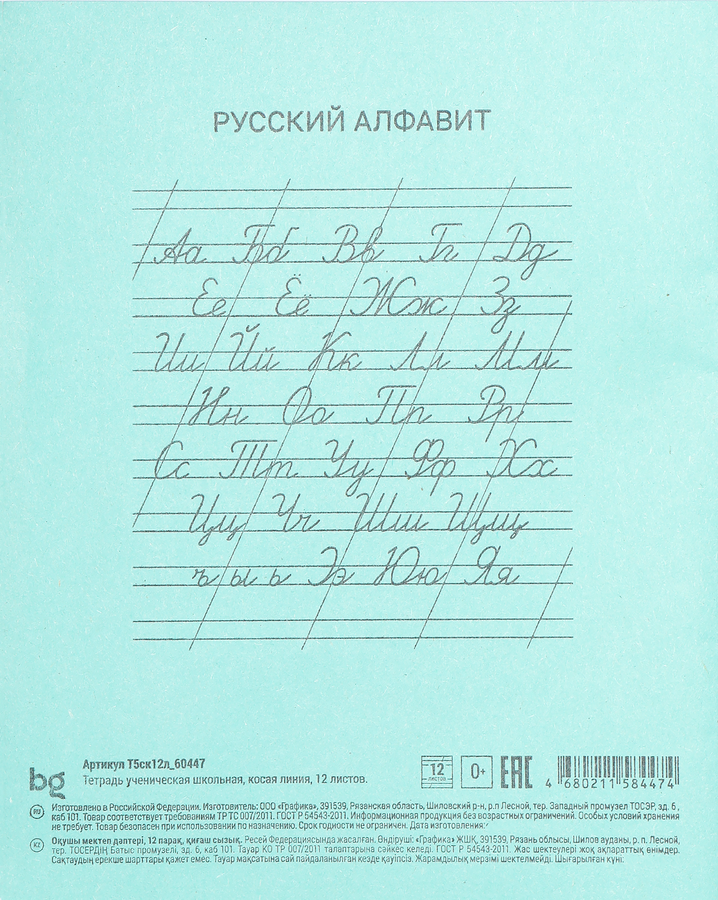 РУССКИЙ АЛФАВИТ
Аа Бб Вв Гг Дд
Ее Ёё Жж Зз
Ии Йй Кк Лл Мм
Нн Оо Пп Рр
Сс Тт Уу Фф Хх
Цц Чч Шш Щщ
ъ ы ь Ээ Юю Яя
bg
Артикул Т5ск12л_60447
Тетрадь ученическая школьная, косая линия, 12 листов.
12
ЛИСТОВ
0+
EAC
4 680211 584474
RU
Изготовлено в Российской Федерации. Изготовитель: ООО «Графика», 391539, Рязанская область, Шиловский р-н, р.п Лесной, тер. Западный промузел ТОСЭР, зд. 6,
каб 101. Товар соответствует требованиям ТР ТС 007/2011. ГОСТ Р 54543-2011. Информационная продукция без возрастных ограничений. Особых условий хранения
не требует. Товар безопасен при использовании по назначению. Срок годности не ограничен. Дата изготовления:
KZ
Оқушы мектеп дәптері, 12 парақ, қиғаш сызық. Ресей Федерациясында жасалған. Өндіруші: «Графика» ЖШҚ, 391539, Рязань облысы, Шилов ауданы, р. п. Лесной,
тер. ТОСЕРДІҢ Батыс промузелі, зд. 6, каб 101. Тауар КО ТР 007/2011 талаптарына сәйкес келеді. ГОСТ Р 54543-2011. Жас шектеулері жоқ ақпараттық өнімдер.
Сақтаудың ерекше шарттары қажет емес. Тауар мақсатына сай пайдаланылған кезде қауіпсіз. Жарамдылық мерзімі шектелмейді. Шығарылған күні: